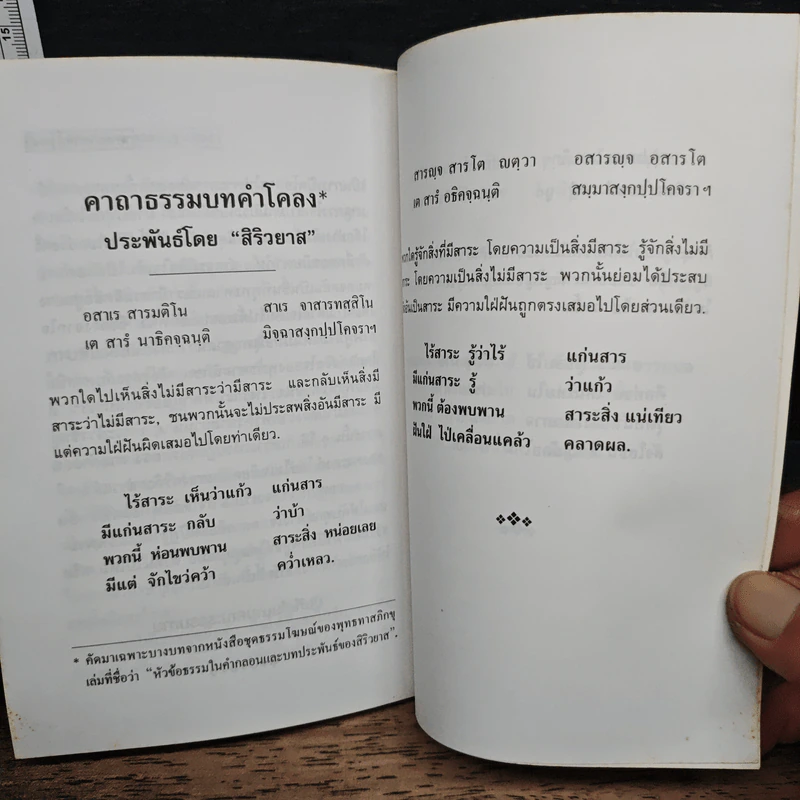 15
คาถาธรรมบทคำโคลง*
ประพันธ์โดย “สิริวยาส”
อสาเร สารมติโน สาเร จาสารทสฺสิโน
เต สารํ นาธิคจฺฉนฺติ มิจฺฉาสงฺกปฺปโคจราฯ
พวกใดไปเห็นสิ่งไม่มีสาระว่ามีสาระ และกลับเห็นสิ่งมี
สาระว่าไม่มีสาระ, ชนพวกนั้นจะไม่ประสพสิ่งอันมีสาระ มี
แต่ความใฝ่ฝันผิดเสมอไปโดยท่าเดียว.
ไร้สาระ เห็นว่าแก้ว แก่นสาร
มีแก่นสาระ กลับ ว่าบ้า
พวกนี้ ห่อนพบพาน สาระสิ่ง หน่อยเลย
มีแต่ จักไขว่คว้า คว่ำเหลว.
* คัดมาเฉพาะบางบทจากหนังสือชุดธรรมโฆษณ์ของพุทธทาสภิกขุ
เล่มที่ชื่อว่า “หัวข้อธรรมในคำกลอนและบทประพันธ์ของสิริวยาส”.
สารญฺจ สารโต ญตฺวา อสารญฺจ อสารโต
เต สารํ อธิคจฺฉนฺติ สมฺมาสงฺกปฺปโคจราฯ
พวกใดรู้จักสิ่งที่มีสาระ โดยความเป็นสิ่งมีสาระ รู้จักสิ่งไม่มี
สาระ โดยความเป็นสิ่งไม่มีสาระ พวกนั้นย่อมได้ประสบ
เป็นสาระ มีความใฝ่ฝันถูกตรงเสมอไปโดยส่วนเดียว.
ไร้สาระ รู้ว่าไร้ แก่นสาร
มีแก่นสาระ รู้ ว่าแก้ว
พวกนี้ ต้องพบพาน สาระสิ่ง แน่เทียว
ฝันใฝ่ ไป่เคลื่อนแคล้ว คลาดผล.